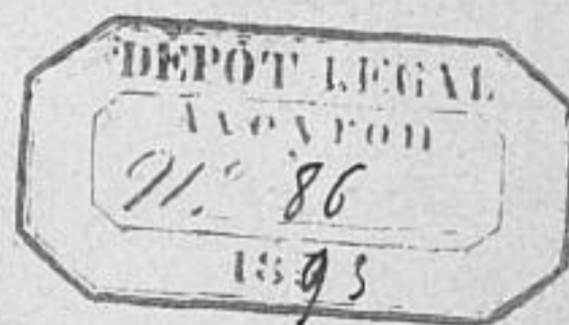 DÉPÔT LEGAL
Aveyron
N.º 86
1893